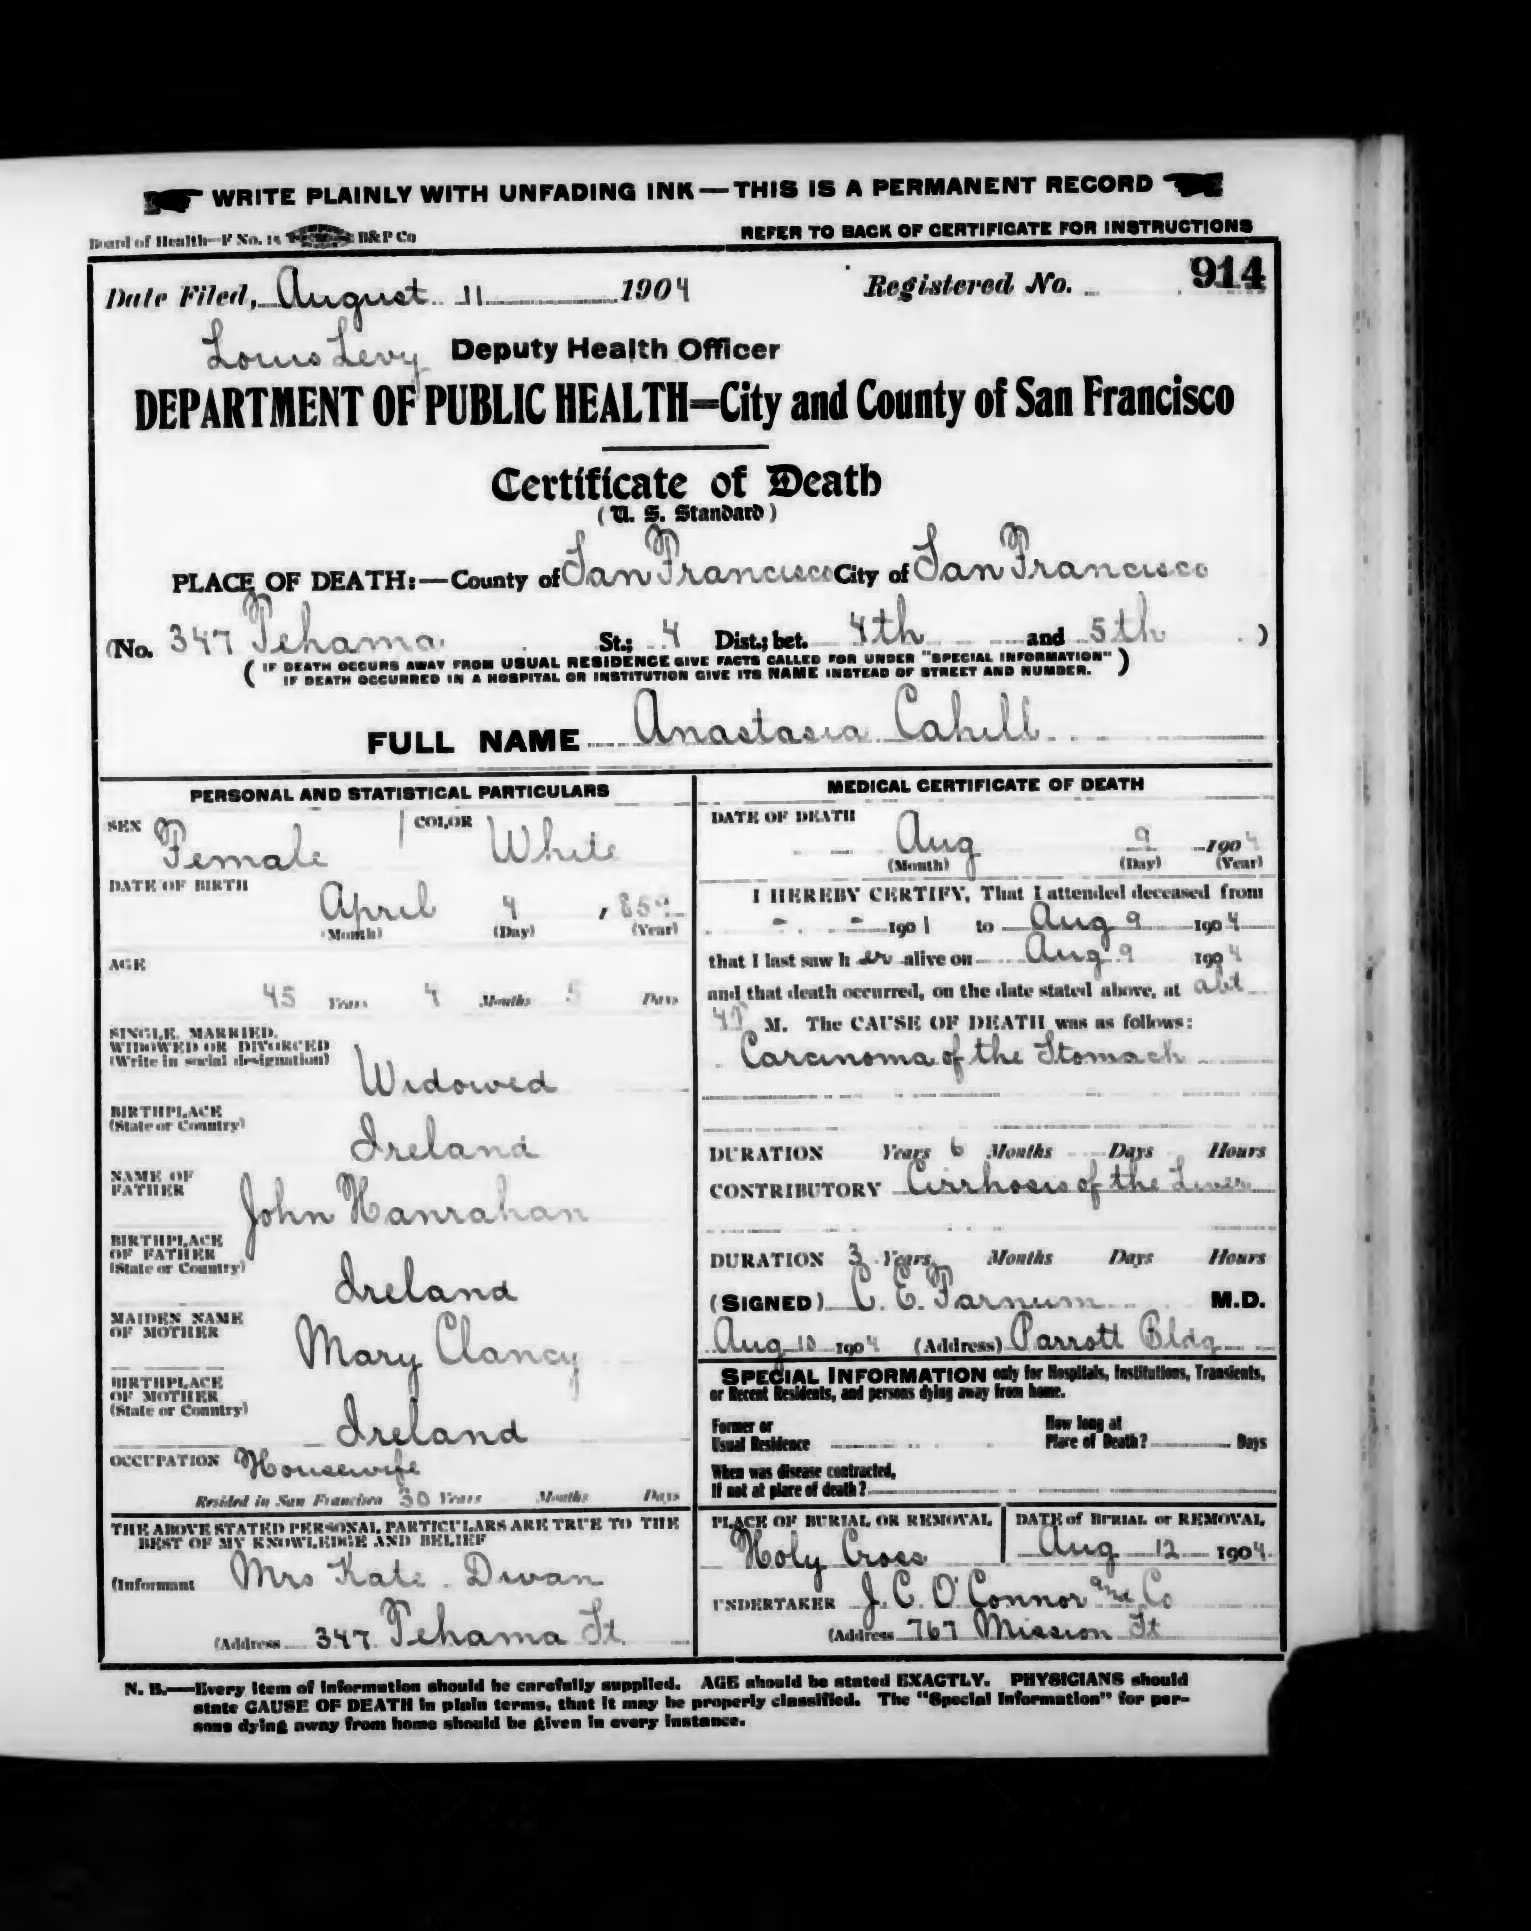 WRITE PLAINLY WITH UNFADING INK — THIS IS A PERMANENT RECORD
Board of Health—F No. 15 B&P Co
REFER TO BACK OF CERTIFICATE FOR INSTRUCTIONS
Date Filed, August 11 1904 Registered No. 914
Louis Levy Deputy Health Officer
DEPARTMENT OF PUBLIC HEALTH=City and County of San Francisco
Certificate of Death
(U. S. Standard)
PLACE OF DEATH:—County of San Francisco City of San Francisco
(No. 347 Tehama St.; 4 Dist.; bet. 4th and 5th )
( IF DEATH OCCURS AWAY FROM USUAL RESIDENCE GIVE FACTS CALLED FOR UNDER "SPECIAL INFORMATION"
IF DEATH OCCURRED IN A HOSPITAL OR INSTITUTION GIVE ITS NAME INSTEAD OF STREET AND NUMBER. )
FULL NAME Anastasia Cahill
PERSONAL AND STATISTICAL PARTICULARS
SEX Female COLOR White
DATE OF BIRTH
April 4 , 859
(Month) (Day) (Year)
AGE
45 Years 4 Months 5 Days
SINGLE, MARRIED,
WIDOWED OR DIVORCED
(Write in social designation)
Widowed
BIRTHPLACE
(State or Country)
Ireland
NAME OF
FATHER
John Hanrahan
BIRTHPLACE
OF FATHER
(State or Country)
Ireland
MAIDEN NAME
OF MOTHER
Mary Clancy
BIRTHPLACE
OF MOTHER
(State or Country)
Ireland
OCCUPATION Housewife
Resided in San Francisco 30 Years Months Days
THE ABOVE STATED PERSONAL PARTICULARS ARE TRUE TO THE
BEST OF MY KNOWLEDGE AND BELIEF
(Informant Mrs Kate Divan
(Address 347 Tehama St
MEDICAL CERTIFICATE OF DEATH
DATE OF DEATH
Aug 9 1904
(Month) (Day) (Year)
I HEREBY CERTIFY, That I attended deceased from
- - 1901 to Aug 9 1904
that I last saw h er alive on Aug 9 1904
and that death occurred, on the date stated above, at abt
4 P M. The CAUSE OF DEATH was as follows:
Carcinoma of the Stomach
DURATION Years 6 Months Days Hours
CONTRIBUTORY Cirrhosis of the Liver
DURATION 3 Years Months Days Hours
(SIGNED) C. E. Farnum M.D.
Aug 10 1904 (Address) Parrott Bldg
SPECIAL INFORMATION only for Hospitals, Institutions, Transients,
or Recent Residents, and persons dying away from home.
Former or
Usual Residence
How long at
Place of Death? Days
When was disease contracted,
If not at place of death?
PLACE OF BURIAL OR REMOVAL
Holy Cross
DATE of BURIAL or REMOVAL
Aug 12 1904
UNDERTAKER J. C. O'Connor and Co
(Address 767 Mission St
N. B.—Every item of information should be carefully supplied. AGE should be stated EXACTLY. PHYSICIANS should
state CAUSE OF DEATH in plain terms, that it may be properly classified. The "Special Information" for per-
sons dying away from home should be given in every instance.